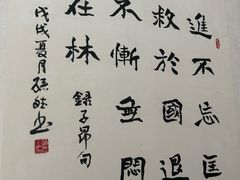 進不忘匡
救於國退
不慚無悶
在林
録子昂句
戊戌夏月孫
書